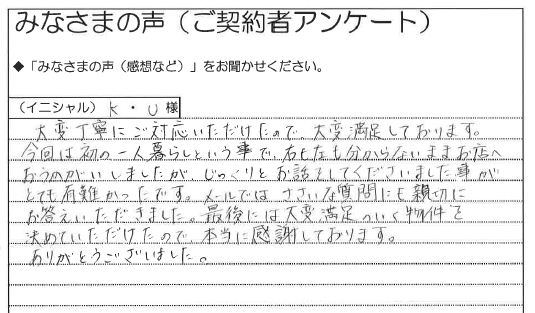 みなさまの声（ご契約者アンケート）
◆「みなさまの声（感想など）」をお聞かせください。
（イニシャル） K ・ U 様
大変丁寧にご対応いただけたので、大変満足しております。
今回は初の一人暮らしという事で、右も左も分からないままお店へ
おうかがいしましたが じっくりとお話をしてくださいました事が
とても有難かったです。メールでは ささいな質問にも親切に
お答えいただきました。最後には大変満足のいく物件を
決めていただけたので 本当に感謝しております。
ありがとうございました。